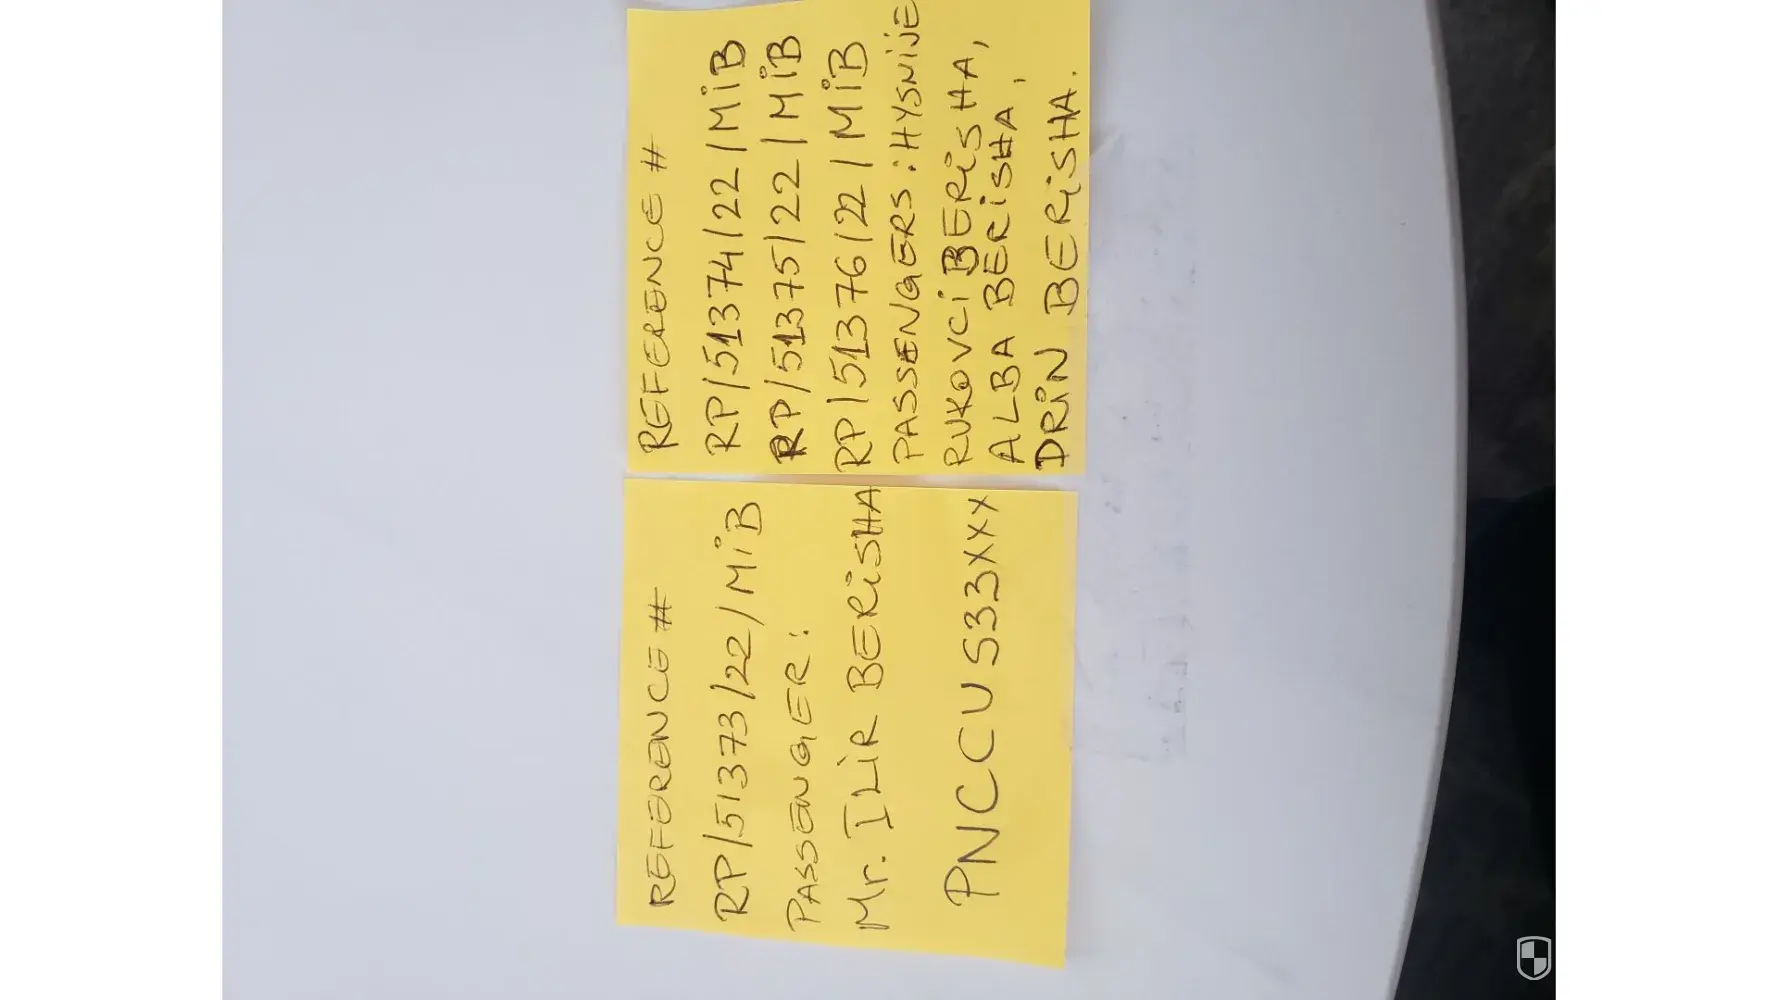 REFERENCE #
RP/51373/22/MiB
PASSENGER:
Mr. ILIR BERISHA
PNCCUS33XXX
REFERENCE #
RP/51374/22/MiB
RP/51375/22/MiB
RP/51376/22/MiB
PASSENGERS: HYSNIJE
RUKOVCI BERISHA,
ALBA BERISHA,
DRIN BERISHA.